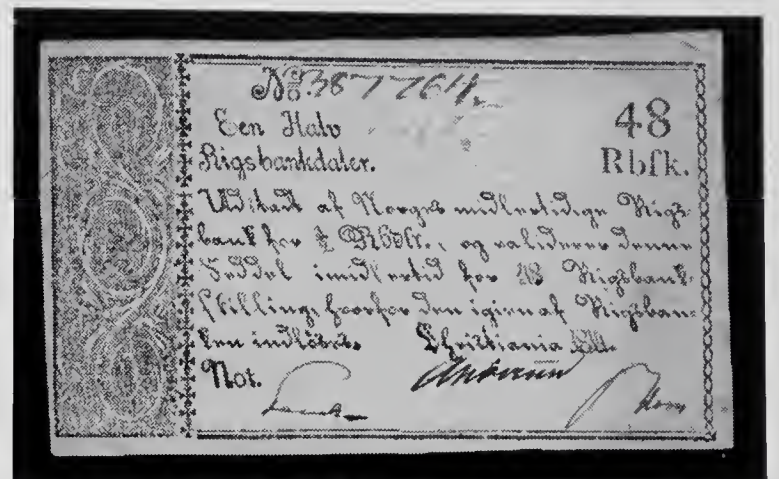 No. 387764.
48
Een Halv
Rigsbankdaler.
Rbſk.
Udstædt af Norges midlertidige Rigs-
bank for ½ Rbdlr., og validerer denne
Seddel imidlertid for 48 Rigsbank-
ſkilling, hvorfor den igien af Rigsban-
ken indløses. Christiania
Not.